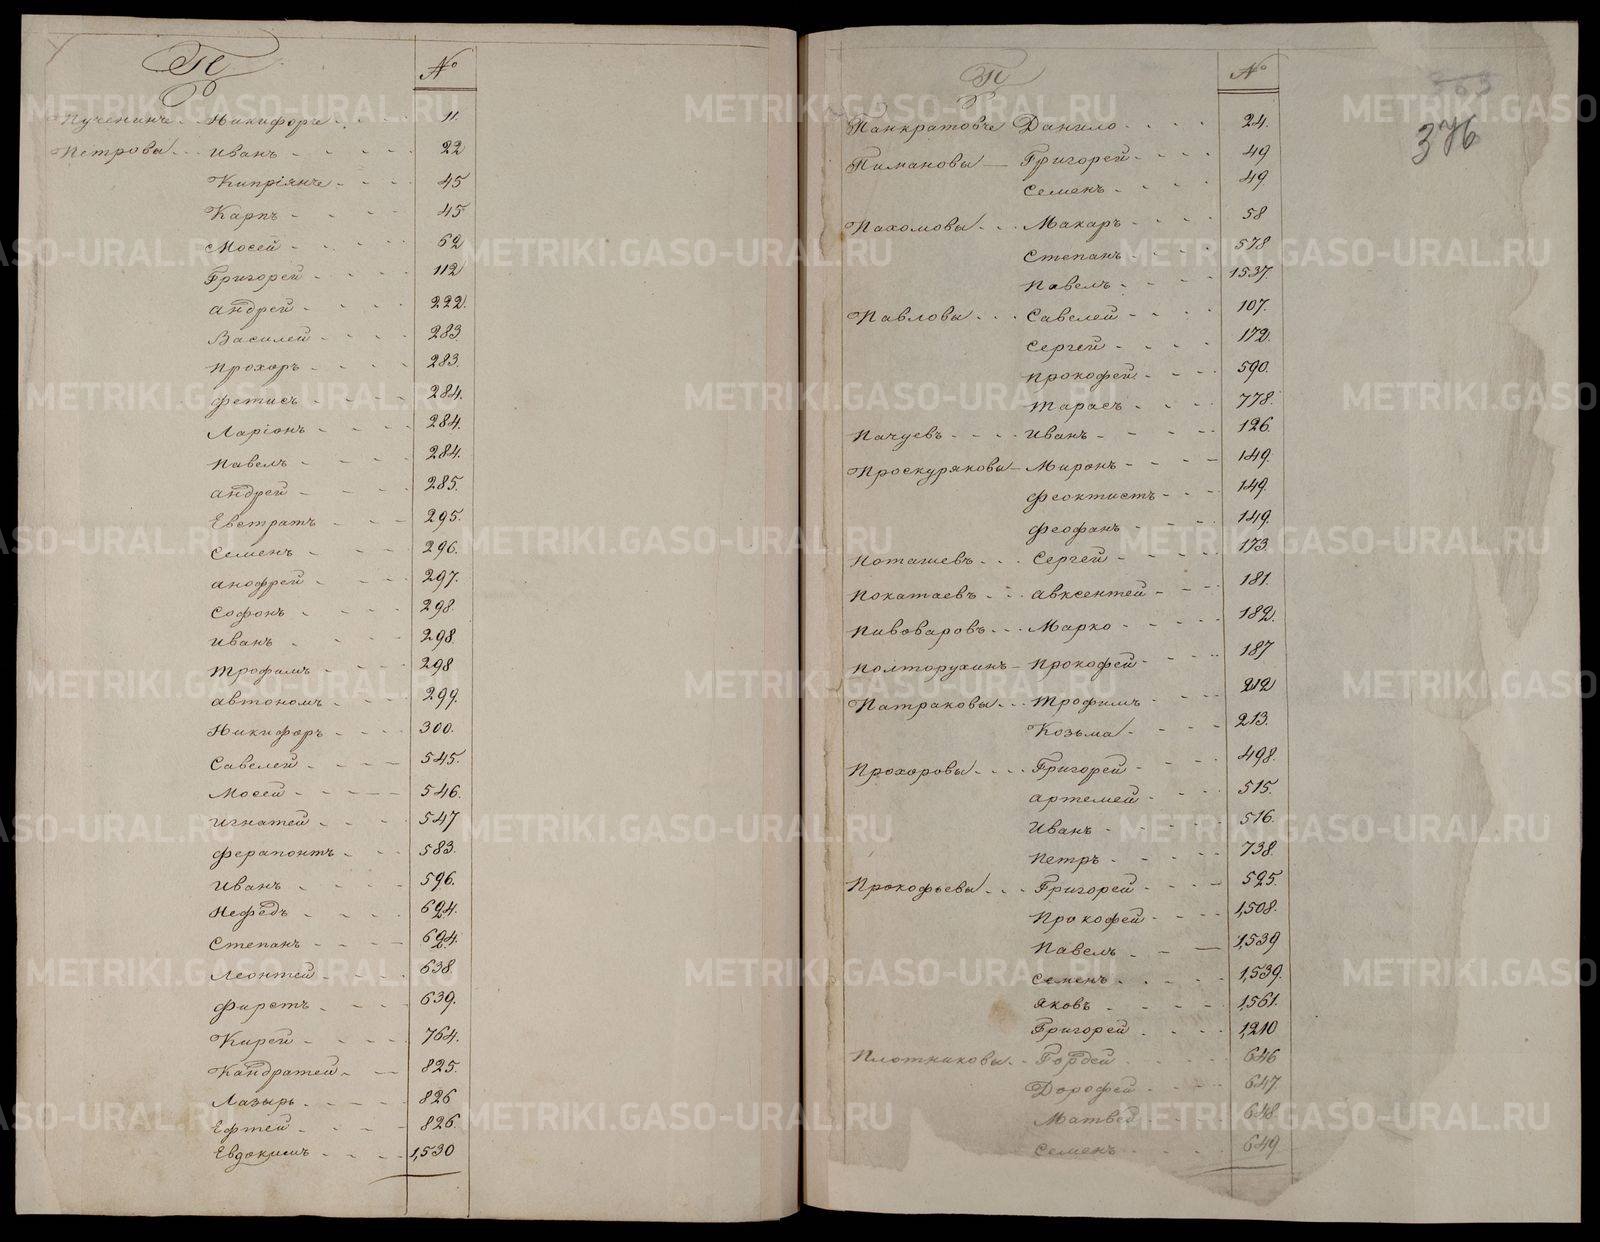 П №
Пученинъ Никифоръ 11.
Петровы Иванъ 22
Кипріянъ 45
Карпъ 45
Мосей 62
Григорей 112
андрей 222.
Василей 283.
Прохоръ 283.
Фетисъ 284.
Ларіонъ 284.
Павелъ 284.
андрей 285.
Евстратъ 295.
Семенъ 296.
анофрей 297.
Софонъ 298.
Иванъ 298.
Трофимъ 298
автономъ 299.
Никифоръ 300.
Савелей 545.
Мосей 546.
Игнатей 547
Ферапонтъ 583.
Иванъ 596.
Нефедъ 624.
Степанъ 624.
Леонтей 638.
Фирстъ 639.
Кирей 764.
Кандратей 825.
Лазырь 826
Ефтей 826.
Евдокимъ 1,530
П №
376
Панкратовъ Данило 24.
Пимановы Григорей 49
Семенъ 49
Пахомовы Макаръ 58
Степанъ 578
Павелъ 1537.
Павловы Савелей 107.
Сергей 172.
Прокофей 590.
Тарасъ 778.
Пачуевъ Иванъ 126.
Проскуряковы Миронъ 149.
Феоктистъ 149.
Феофанъ 149.
Поташевъ Сергей 173.
Покатаевъ авксентей 181.
Пивоваровъ Марко 182.
Полторухинъ Прокофей 187
Патраковы Трофимъ 212
Козьма 213.
Прохоровы Григорей 498.
артемей 515.
Иванъ 516.
Петръ 738.
Прокофьевы Григорей 525.
Прокофей 1,508.
Павелъ 1,539
Семенъ 1,539.
Яковъ 1,561.
Григорей 1,210
Плотниковы Гордей 646
Дорофей 647.
Матвей 648.
Семенъ 649
METRIKI.GASO-URAL.RU